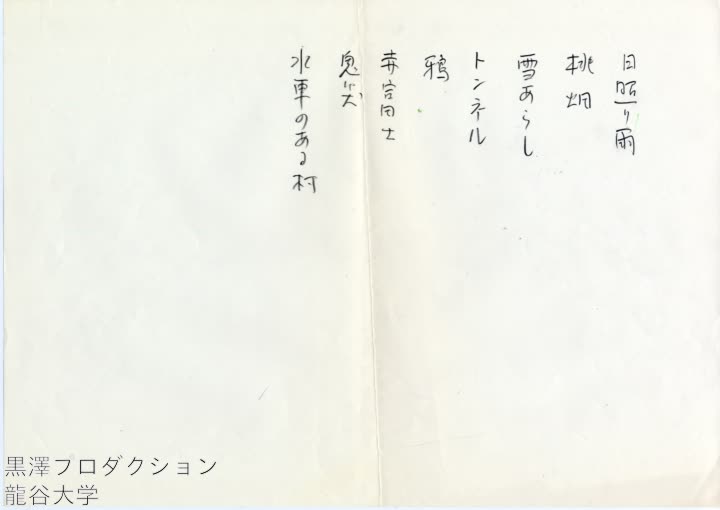 日照り雨
桃畑
雪あらし
トンネル
鴉
赤富士
鬼哭
水車のある村
黒澤プロダクション
龍谷大学